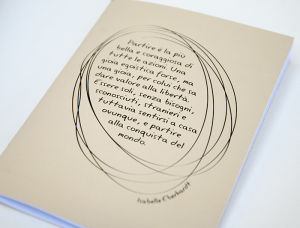 Partire è la più
bella e coraggiosa di
tutte le azioni. Una
gioia egoistica forse, ma
una gioia, per colui che sa
dare valore alla libertà.
Essere soli, senza bisogni,
sconosciuti, stranieri e
tuttavia sentirsi a casa
ovunque, e partire
alla conquista del
mondo.
Isabelle Eberhardt